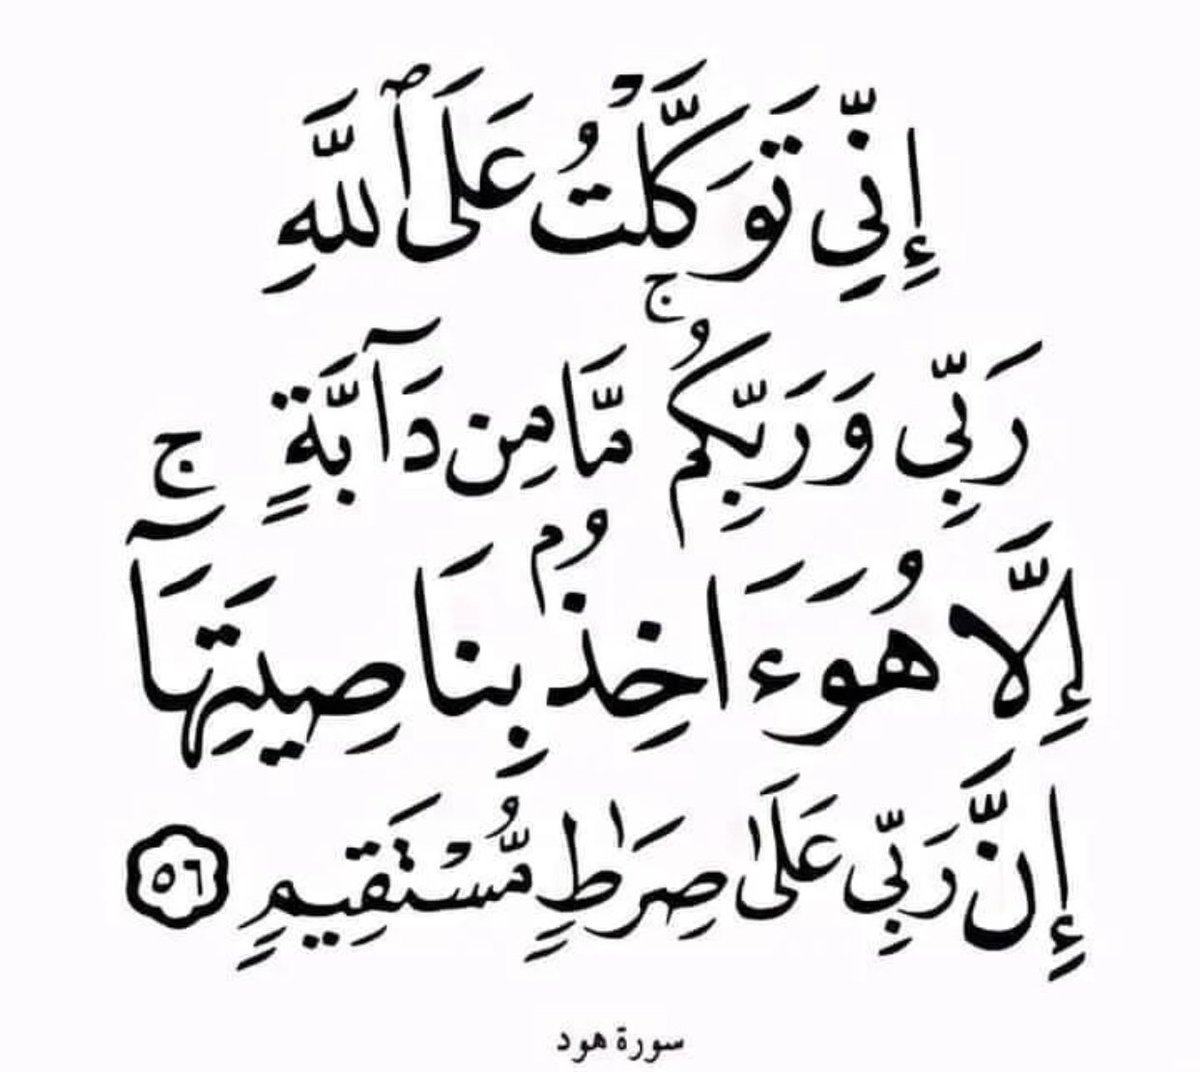 إِنِّي تَوَكَّلْتُ عَلَى ٱللَّهِ
رَبِّي وَرَبِّكُم ۚ مَّا مِن دَآبَّةٍ ج
إِلَّا هُوَ ءَاخِذُۢ بِنَاصِيَتِهَآ
إِنَّ رَبِّي عَلَىٰ صِرَٰطٍ مُّسْتَقِيمٍ ٥٦
سورة هود